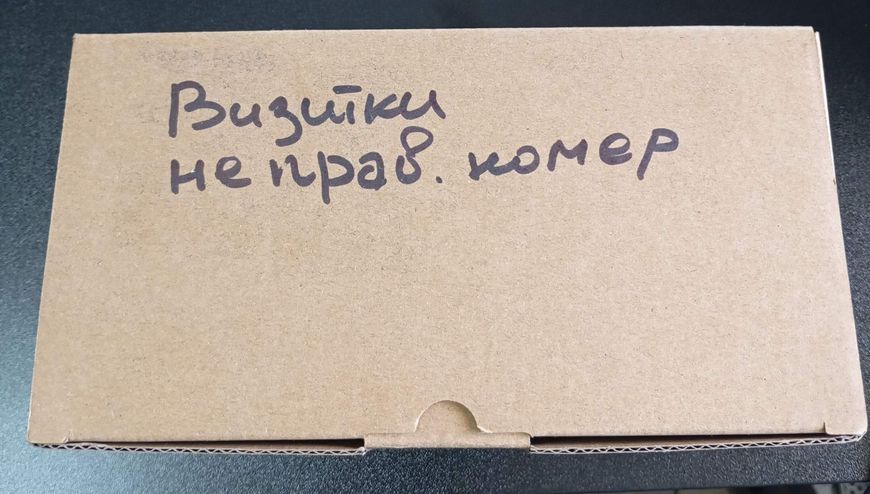 Визитки
неправ. номер